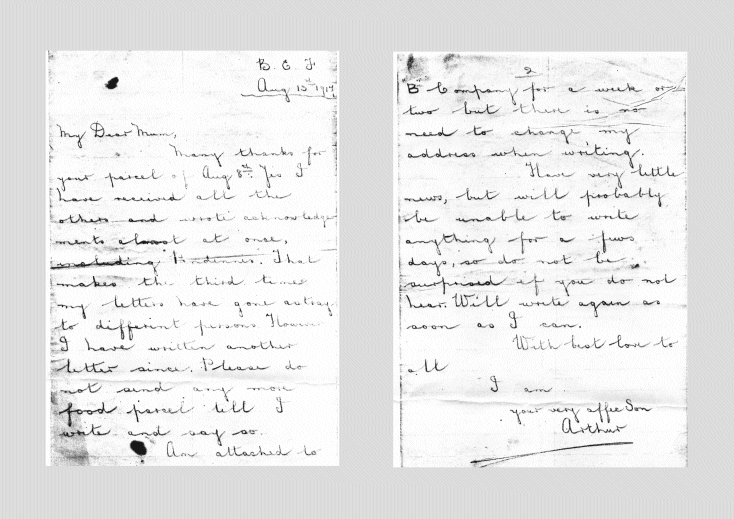 B. E. F.
Aug 13th 1917
My Dear Mum,
Many thanks for
your parcel of Aug 8th. Yes I
have received all the
others and wrote acknowledge
ments almost at once,
including That
makes the third time
my letters have gone astray
to different persons. However
I have written another
letter since. Please do
not send any more
food parcel till I
write and say so.
Am attached to
2
B Company for a week or
two but there is no
need to change my
address when writing.
Have very little
news, but will probably
be unable to write
anything for a few
days, so do not be
surprised if you do not
hear. Will write again as
soon as I can.
With best love to
all
I am
your very affec Son
Arthur